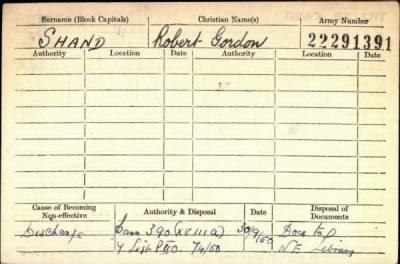 Surname (Block Capitals) Christian Name(s) Army Number
SHAND Robert Gordon 22291391
Authority Location Date Authority Location Date
Cause of Becoming Non-effective Authority & Disposal Date Disposal of Documents
Discharge Para 390 (XVIII a) 30/9/50 Docs to
Y List P110. 74/50 Library